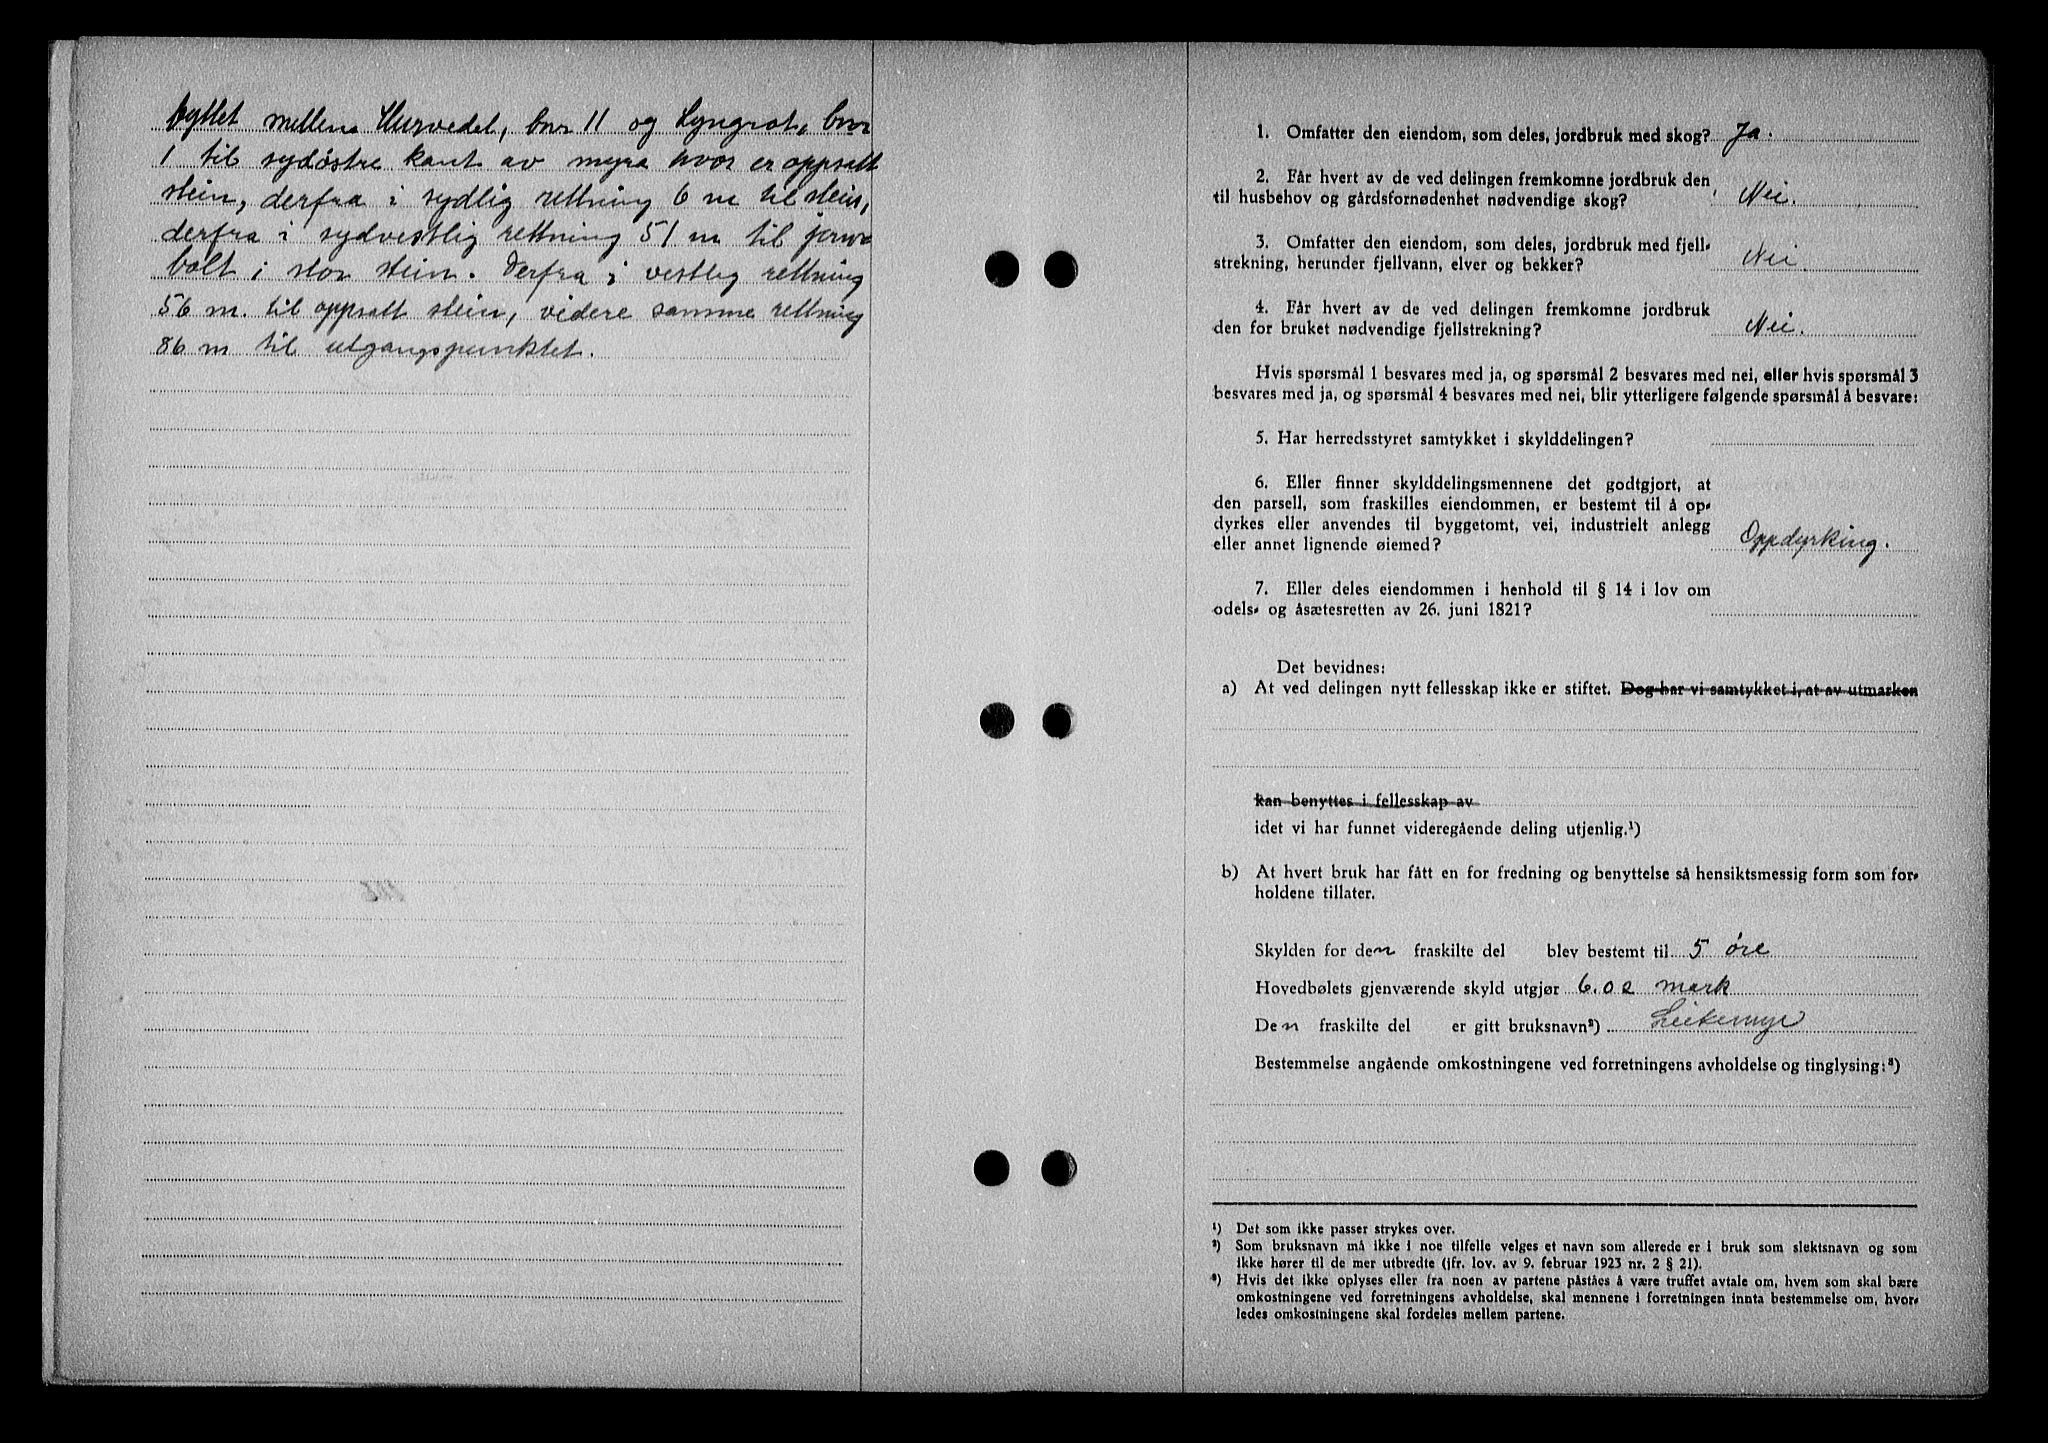 byttet mellem Hursvedet, bnr 11 og Lyngrot, bnr
1 til sydöstre kant av myra hvor er oppsatt
stein, derfra i sydlig rettning 6 m til stein,
derfra i sydvestlig rettning 51 m til jern
bolt i stor stein. Derfra i vestlig rettning
56 m. til oppsatt stein, videre samme rettning
86 m til utgangspunktet.
1. Omfatter den eiendom, som deles, jordbruk med skog? Ja.
2. Får hvert av de ved delingen fremkomne jordbruk den
til husbehov og gårdsfornødenhet nødvendige skog? Nei.
3. Omfatter den eiendom, som deles, jordbruk med fjell-
strekning, herunder fjellvann, elver og bekker? Nei.
4. Får hvert av de ved delingen fremkomne jordbruk
den for bruket nødvendige fjellstrekning? Nei.
Hvis spørsmål 1 besvares med ja, og spørsmål 2 besvares med nei, eller hvis spørsmål 3
besvares med ja, og spørsmål 4 besvares med nei, blir ytterligere følgende spørsmål å besvare:
5. Har herredsstyret samtykket i skylddelingen?
6. Eller finner skylddelingsmennene det godtgjort, at
den parsell, som fraskilles eiendommen, er bestemt til å op-
dyrkes eller anvendes til byggetomt, vei, industrielt anlegg
eller annet lignende øiemed? Oppdyrking.
7. Eller deles eiendommen i henhold til § 14 i lov om
odels- og åsætesretten av 26. juni 1821?
Det bevidnes:
a) At ved delingen nytt fellesskap ikke er stiftet. Dog har vi samtykket i, at av utmarken
kan benyttes i fellesskap av
idet vi har funnet videregående deling utjenlig.¹)
b) At hvert bruk har fått en for fredning og benyttelse så hensiktsmessig form som for-
holdene tillater.
Skylden for den fraskilte del blev bestemt til 5 øre
Hovedbølets gjenværende skyld utgjør 6.02 mark
Den fraskilte del er gitt bruksnavn²) Leitemyr
Bestemmelse angående omkostningene ved forretningens avholdelse og tinglysing:³)
¹) Det som ikke passer strykes over.
²) Som bruksnavn må ikke i noe tilfelle velges et navn som allerede er i bruk som slektsnavn og som
ikke hører til de mer utbredte (jfr. lov. av 9. februar 1923 nr. 2 § 21).
³) Hvis det ikke oplyses eller fra noen av partene påståes å være truffet avtale om, hvem som skal bære
omkostningene ved forretningens avholdelse, skal mennene i forretningen innta bestemmelse om, hvor-
ledes omkostningene skal fordeles mellem partene.